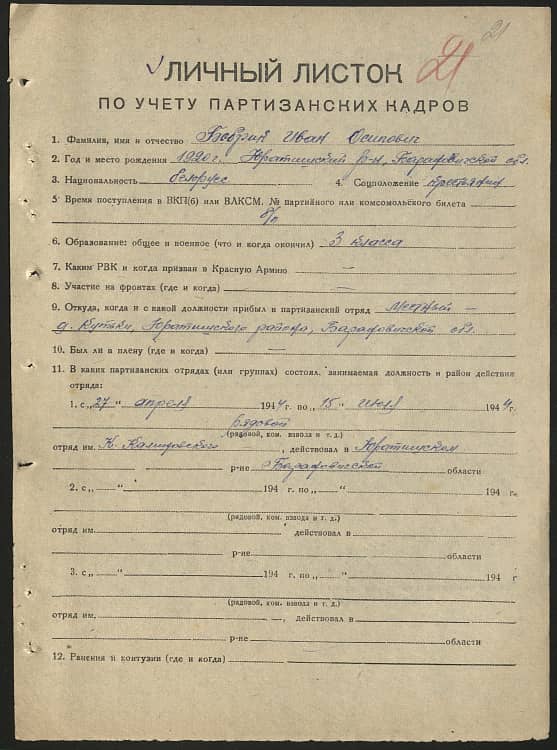 21
21
ЛИЧНЫЙ ЛИСТОК
ПО УЧЕТУ ПАРТИЗАНСКИХ КАДРОВ
1. Фамилия, имя и отчество Иван Осипович
2. Год и место рождения 1920 г. Юратишский р-н, Барановичской обл.
3. Национальность белорус 4. Соцположение крестьянин
5. Время поступления в ВКП(б) или ВЛКСМ, № партийного или комсомольского билета
б/п
6. Образование: общее и военное (что и когда окончил) 3 класса
7. Каким РВК и когда призван в Красную Армию —
8. Участие на фронтах (где и когда) —
9. Откуда, когда и с какой должности прибыл в партизанский отряд Местный —
д. Юратишского района, Барановичской обл.
10. Был ли в плену (где и когда) —
11. В каких партизанских отрядах (или группах) состоял, занимаемая должность и район действия
отряда:
1. с „27“ апреля 1944 г. по „15“ июля 1944 г.
рядовой
(рядовой, ком. взвода и т. д.)
отряд им. К. Калиновского, действовал в Юратишском
р-не Барановичской области
2. с „ “ 194 г. по „ “ 194 г.
(рядовой, ком. взвода и т. д.)
отряд им. действовал в
р-не области
3. с „ “ 194 г. по „ “ 194 г
(рядовой, ком. взвода и т. д.)
отряд им. , действовал в
р-не области
12. Ранения и контузии (где и когда)